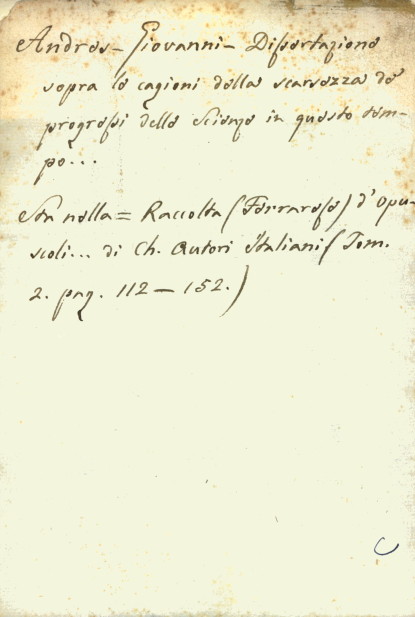 Andres - Giovanni - Dissertazione
sopra le cagioni della scarsezza de
progressi delle Scienze in questo tem-
po...
Sta nella = Raccolta (Ferrarese) d'Opu-
scoli... di Ch. Autori Italiani (Tom.
2. pag. 112 - 152.)